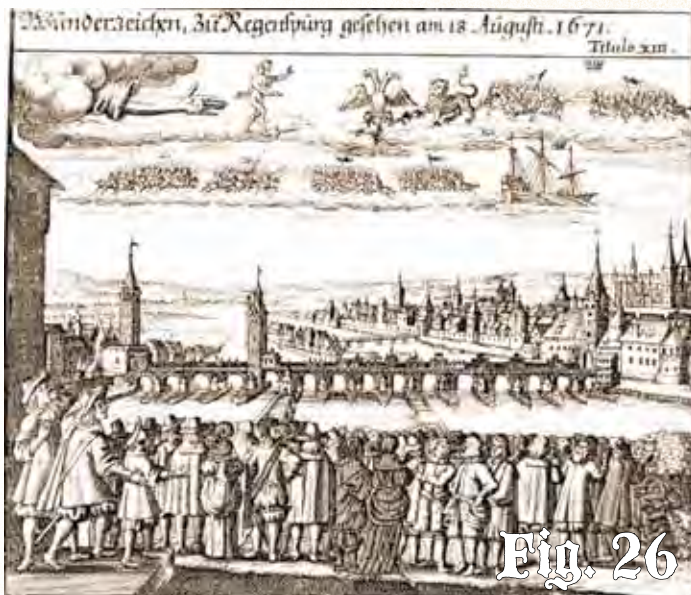 Wunderzeichen, Zu Regenspürg gesehen am 18 Augusti. 1671.
Titulo XIII.
Fig. 26